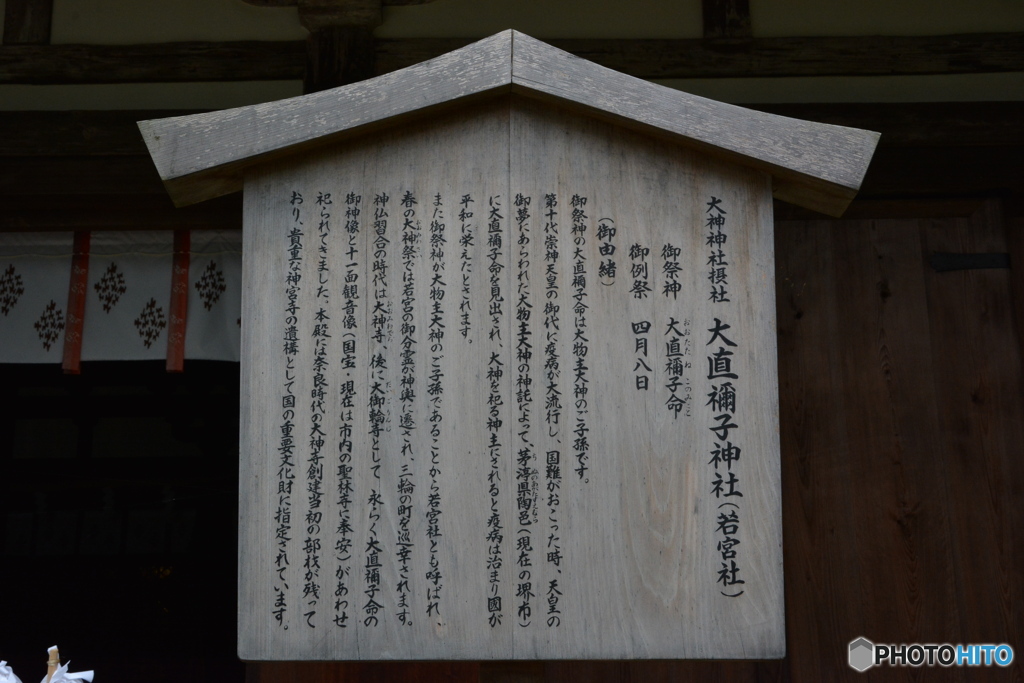 大神神社摂社 大直禰子神社(若宮社)
御祭神 大直禰子命
おおたたねこのみこと
御例祭 四月八日
(御由緒)
御祭神の大直禰子命は大物主大神のご子孫です。
第十代崇神天皇の御代に疫病が大流行し、国難がおこった時、天皇の
御夢にあらわれた大物主大神の神託によって、茅渟県陶邑(現在の堺市)
に大直禰子命を見出され、大神を祀る神主にされると疫病は治まり國が
平和に栄えたとされます。
また御祭神が大物主大神のご子孫であることから若宮社とも呼ばれ、
春の大神祭では若宮の御分霊が神輿に遷され、三輪の町を巡幸されます。
神仏習合の時代は大神寺、後に大御輪寺として 永らく大直禰子命の
御神像と十一面観音像(国宝・現在は市内の聖林寺に奉安)があわせ
祀られてきました、本殿には奈良時代の大神寺創建当初の部材が残って
おり、貴重な神宮寺の遺構として国の重要文化財に指定されています。
PHOTOHITO